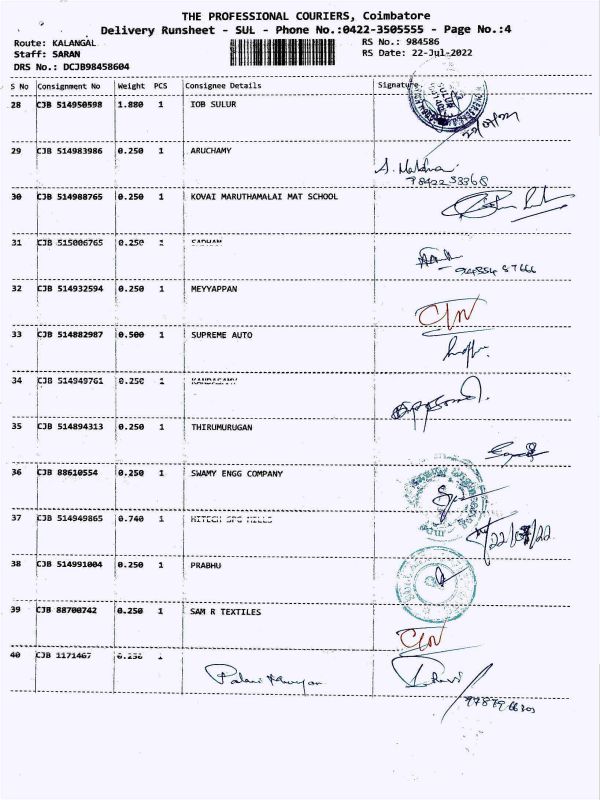 THE PROFESSIONAL COURIERS, Coimbatore
Delivery Runsheet - SUL - Phone No.:0422-3505555 - Page No.:4
Route: KALANGAL
RS No.: 984586
Staff: SARAN
RS Date: 22-Jul-2022
DRS No.: DCJB98458604
S No Consignment No Weight PCS Consignee Details Signature
28 CJB 514950598 1.880 1 IOB SULUR
29 CJB 514983986 0.250 1 ARUCHAMY
30 CJB 514988765 0.250 1 KOVAI MARUTHAMALAI MAT SCHOOL
31 CJB 515006765 0.250 1 SADHAM
32 CJB 514932594 0.250 1 MEYYAPPAN
33 CJB 514882987 0.500 1 SUPREME AUTO
34 CJB 514949761 0.250 1 KANDASAMY
35 CJB 514894313 0.250 1 THIRUMURUGAN
36 CJB 88610554 0.250 1 SWAMY ENGG COMPANY
37 CJB 514949865 0.740 1 HITECH SPG MILLS
22/07/22
38 CJB 514991004 0.250 1 PRABHU
39 CJB 88700742 0.250 1 SAM R TEXTILES
40 CJB 1171467 1